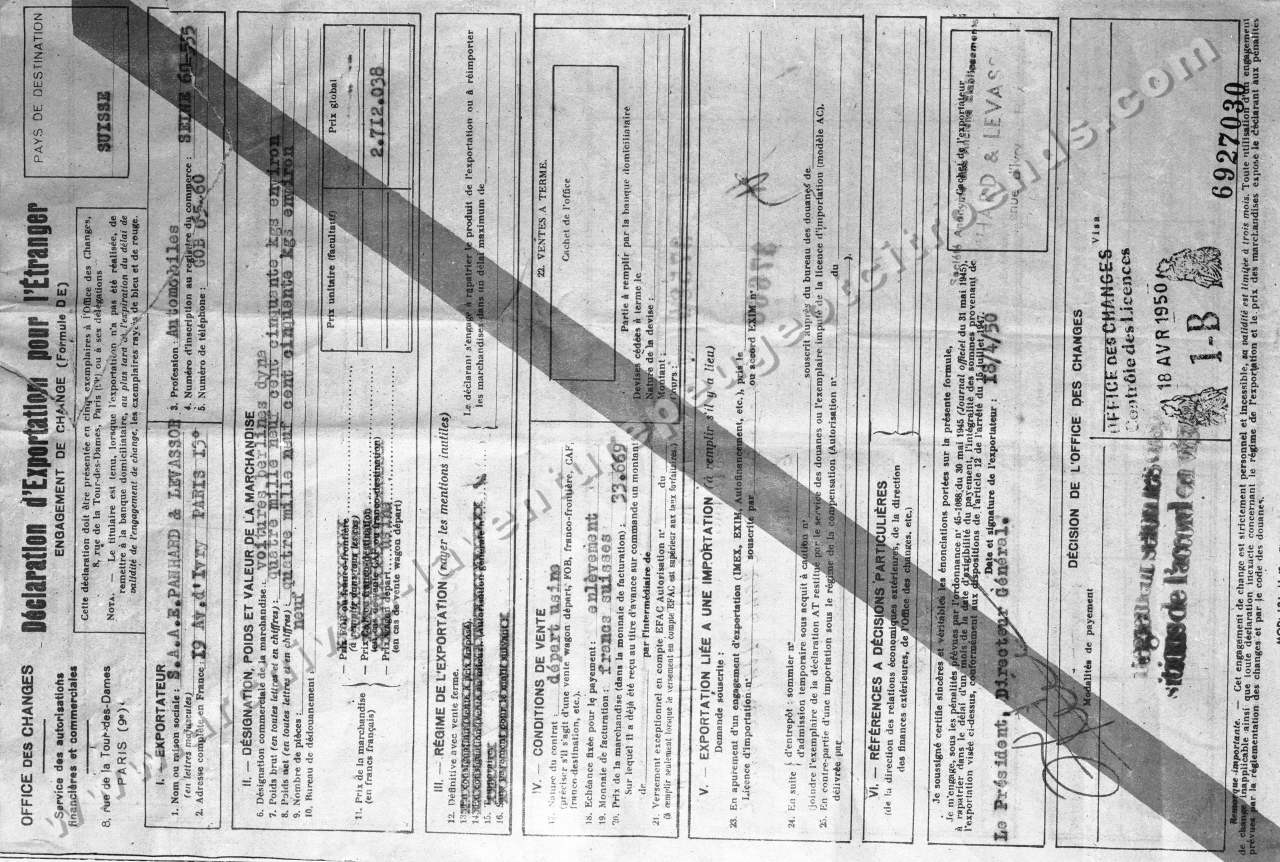 OFFICE DES CHANGES
Service des autorisations
financières et commerciales
8, rue de la Tour-des-Dames
PARIS (9e)
Déclaration d'Exportation pour l'Étranger
ENGAGEMENT DE CHANGE (Formule DE)
Cette déclaration doit être présentée en cinq exemplaires à l'Office des Changes,
8, rue de la Tour-des-Dames, Paris (9e) ou à ses délégations
NOTA. Le titulaire est tenu, lorsque l'exportation n'a pas été réalisée, de
remettre à la banque domiciliataire, au plus tard à l'expiration du délai de
validité de l'engagement de change, les exemplaires rayés de bleu et de rouge.
PAYS DE DESTINATION
SUISSE
I. — EXPORTATEUR
1. Nom ou raison sociale : S.A.A.E.PANHARD & LEVASSOR
(en lettres majuscules)
2. Adresse complète en France : 19 Av.d'Ivry PARIS 13°
3. Profession : Automobiles
4. Numéro d'inscription au registre du commerce : SEINE
5. Numéro de téléphone : GOB 65-60
II. — DÉSIGNATION, POIDS ET VALEUR DE LA MARCHANDISE
6. Désignation commerciale de la marchandise : voitures berlines dyna
7. Poids brut (en toutes lettres et en chiffres) : quatre mille neuf cent cinquante kgs environ
8. Poids net (en toutes lettres et en chiffres) : quatre mille neuf cent cinquante kgs environ
9. Nombre de pièces : neuf
10. Bureau de dédouanement :
11. Prix de la marchandise
(en francs français)
— Prix wagon départ
(en cas de vente wagon départ)
Prix unitaire (facultatif)
Prix global
2.712.038
III. — RÉGIME DE L'EXPORTATION (rayer les mentions inutiles)
12. Définitive avec vente ferme.
13.
14.
15.
16.
Le déclarant s'engage à rapatrier le produit de l'exportation ou à réimporter
les marchandises dans un délai maximum de
IV. — CONDITIONS DE VENTE
17. Nature du contrat : départ usine
(préciser s'il s'agit d'une vente wagon départ, FOB, franco-frontière, CAF,
franco-destination, etc.).
18. Echéance fixée pour le payement : enlèvement
19. Monnaie de facturation : francs suisses
20. Prix de la marchandise (dans la monnaie de facturation) : 33.669
Sur lequel il a déjà été reçu au titre d'avance sur commande un montant
de
par l'intermédiaire de
21. Versement exceptionnel en compte EFAC Autorisation n° du
(à remplir seulement lorsque le versement en compte EFAC est supérieur aux taux forfaitaires.)
22. VENTES A TERME.
Cachet de l'office
Partie à remplir par la banque domiciliataire
Devises cédées à terme le
Nature de la devise :
Montant :
Cours :
V. — EXPORTATION LIÉE A UNE IMPORTATION (à remplir s'il y a lieu)
Demande souscrite :
23. En apurement d'un engagement d'exportation (IMEX, EXIM, Autofinancement, etc.), pris le
Licence d'importation n° souscrite par ou accord EXIM n°
24. En suite d'entrepôt : sommier n°
d'admission temporaire sous acquit à caution n° souscrit auprès du bureau des douanes de
(joindre l'exemplaire de la déclaration AT restitué par le service des douanes ou l'exemplaire imputé de la licence d'importation (modèle AC).
25. En contre-partie d'une importation sous le régime de la compensation (Autorisation n° du
délivrée par ).
VI. — RÉFÉRENCES A DÉCISIONS PARTICULIÈRES
(de la direction des relations économiques extérieures, de la direction
des finances extérieures, de l'Office des changes, etc.)
Je soussigné certifie sincères et véritables les énonciations portées sur la présente formule,
Je m'engage, sous les pénalités prévues par l'ordonnance n° 45-1088 du 30 mai 1945 (Journal officiel du 31 mai 1945),
à rapatrier dans le délai d'un mois de la date d'exigibilité du payement, l'intégralité des sommes provenant de
l'exportation visée ci-dessus, conformément aux dispositions de l'article 12 de l'arrêté du 15 juillet 1947.
Date et signature de l'exportateur : 18/4/50
Le Président, Directeur Général.
Cachet de l'exportateur
Société Anonyme des Anciens Etablissements
PANHARD & LEVASSOR
DÉCISION DE L'OFFICE DES CHANGES
Modalités de payement
Visa
OFFICE DES CHANGES
Contrôle des Licences
18 AVR 1950
1-B
6927030
Remarque importante. — Cet engagement de change est strictement personnel et incessible, sa validité est limitée à trois mois. Toute utilisation d'un engagement
de change inapplicable ainsi que toute déclaration inexacte concernant le régime de l'exportation et le prix des marchandises expose le déclarant aux pénalités
prévues par la réglementation des changes et par le code des douanes.